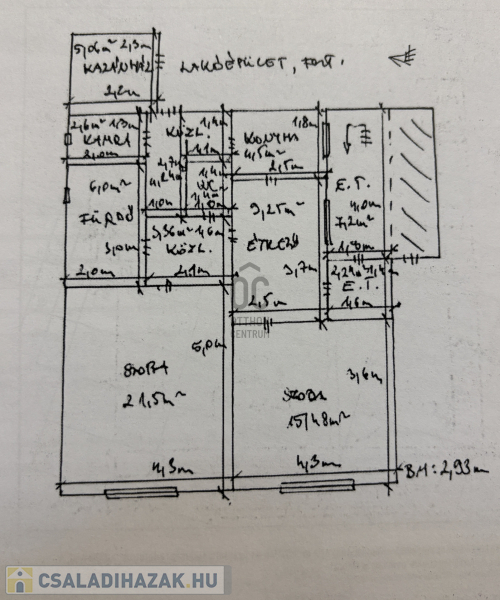 5,06m² 2,3m
KAZÁNHÁZ
2,2m
LAKÓÉPÜLET, FSZT.
2,6m² 1,3m
KAMRA
2,0m
KÖZL.
1,4m
1,1m
2,7m
4,24m
1,0m
KONYHA
1,8m
4,5m²
2,5m
6,0m²
FÜRDŐ
3,0m
2,0m
1,4m
WC
1,4m²
1,0m
3,36m² 1,6m
KÖZL.
2,1m
9,25m²
ÉTKEZŐ
3,7m
2,5m
E.T.
4,0m
7,2m²
1,8m
2,24m² 1,4m
E.T.
1,6m
OC
OTTHON
CENTRUM
SZOBA
21,5m²
5,0m
4,3m
SZOBA
15,48m²
3,6m
4,3m
BM: 2,93m
CSALADIHAZAK.HU